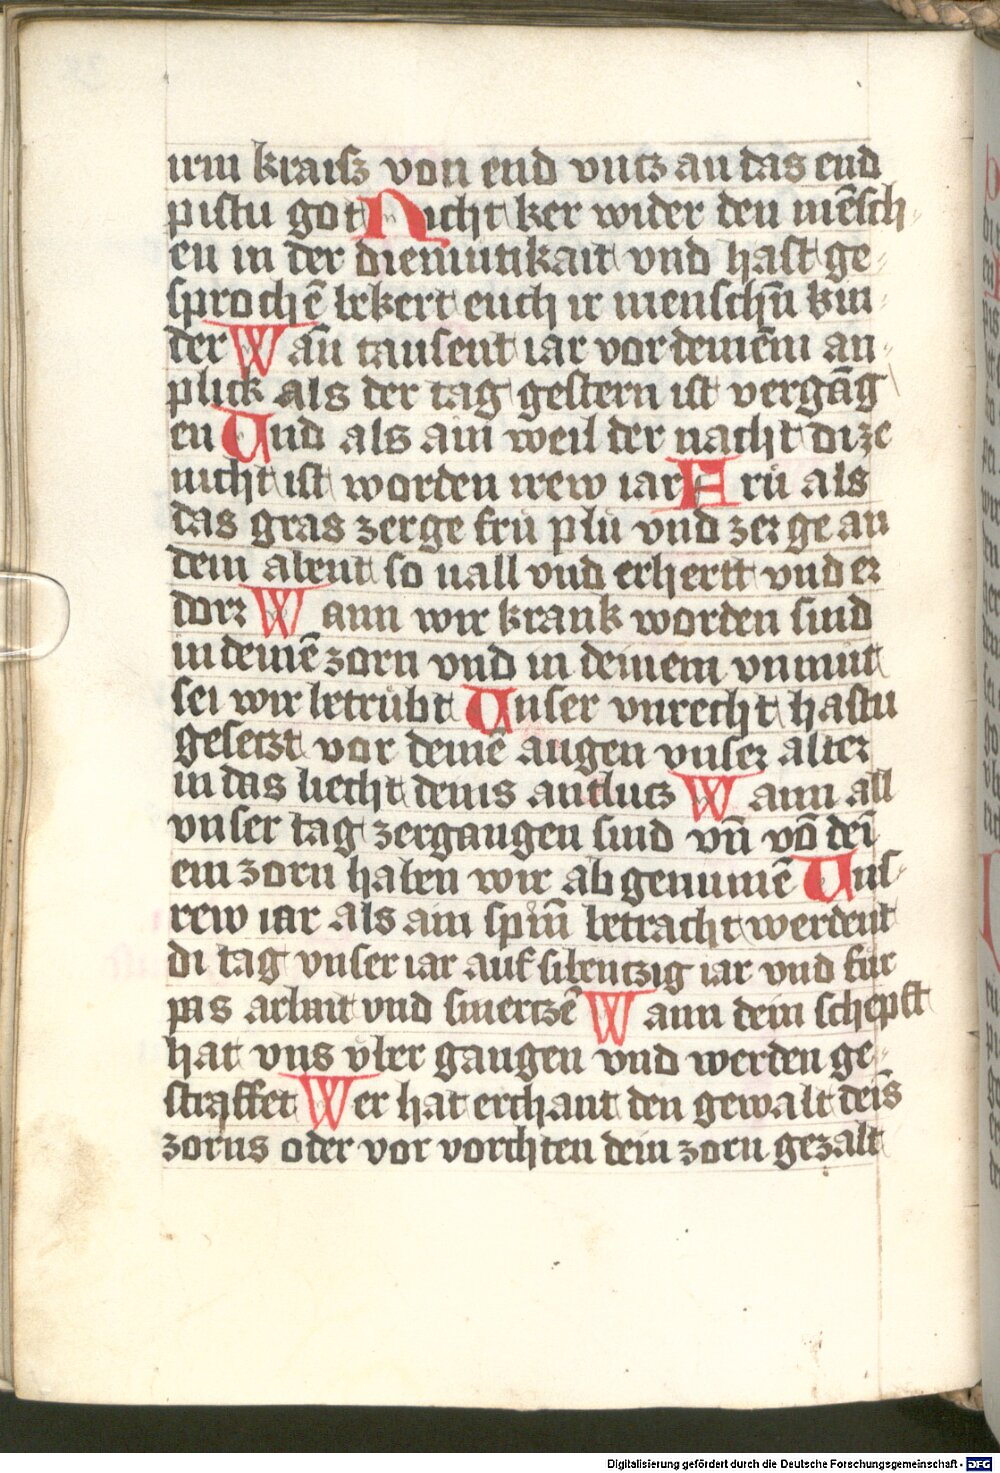 irm kraisz von end vntz an das end
pistu got Nicht ker wider den mēsch⸗
en in der diemutikait vnd hast ge⸗
sprochē bekert euch ir menschn̄ kin
der Wan̄ tausent iar vor deinēm an⸗
plick als der tag gestern ist vergāg
en Und als ain weil der nacht dize
nicht ist worden irew iar Frü als
das gras zerge frü plü vnd zerge an
dem abent so uall vnd erhertt vnd er
dorr Wann wir krank worden sind
in deinē zorn vnd in deinem vnmut
sei wir betrübt Unser vnrecht hastu
gesetzt vor deinē augen vnser alter
in das liecht deins antlutz Wann all
vnser tag zergangen sind vn̄ vō dei
em zorn haben wir ab genumē Uns⸗
rew iar als ain spin̄ betracht werdent
di tag vnser iar auf sibentzig iar vnd für
pas arbait vnd smertzē Wann dein schepft
hat vns vber gangen vnd werden ge⸗
straffet Wer hat erchant den gewalt deīs
zorns oder vor vorchten dein zorn gezalt
Digitalisierung gefördert durch die Deutsche Forschungsgemeinschaft - DFG